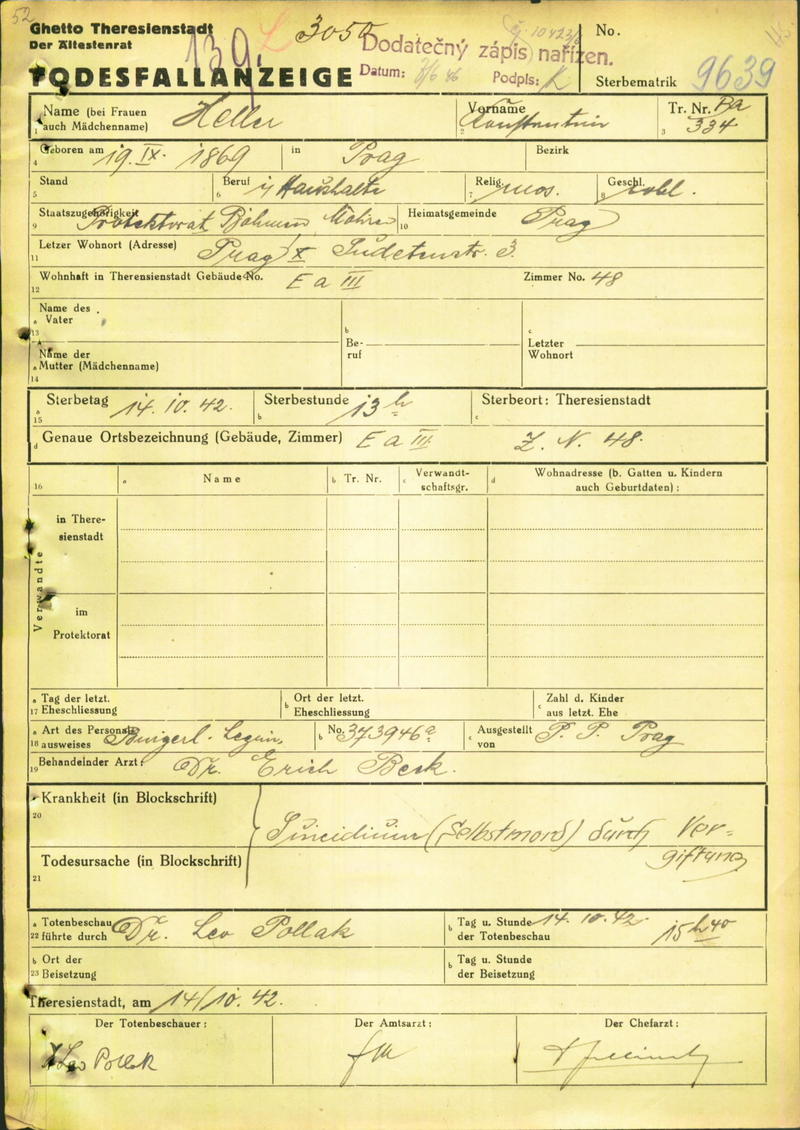 52
Ghetto Theresienstadt
Der Ältestenrat
TODESFALLANZEIGE
139
3050
Dodatečný zápis nařízen.
Datum:
Podpis:
No.
Sterbematrik
9639
Name (bei Frauen
auch Mädchenname)
1
Heller
Vorname
2
Konstantin
Tr. Nr. Ba
3
334
Geboren am 19. IX. 1869
4
in Prag
Bezirk
Stand
5
Beruf i/ Haushalte
6
Relig. mos.
7
Geschl.
8
Staatszugehörigkeit
9
Protektorat Böhmen, Mähren
Heimatsgemeinde Prag
10
Letzer Wohnort (Adresse) Prag X Sudetenstr. 3.
11
Wohnhaft in Theresienstadt Gebäude-No. E a III
12
Zimmer No. 48
Name des
a Vater
13
b
Be-
ruf
c
Letzter
Wohnort
Name der
a Mutter (Mädchenname)
14
Sterbetag 14. 10. 42.
a
15
Sterbestunde 13 h
b
Sterbeort: Theresienstadt
c
d Genaue Ortsbezeichnung (Gebäude, Zimmer) E a III Z. N. 48.
16
a Name
b Tr. Nr.
c Verwandt-
schaftsgr.
d Wohnadresse (b. Gatten u. Kindern
auch Geburtdaten) :
Verwandte
in There-
sienstadt
im
Protektorat
a Tag der letzt.
17 Eheschliessung
b Ort der letzt.
Eheschliessung
c Zahl d. Kinder
aus letzt. Ehe
a Art des Personal-
18 ausweises
b No. 373946a
c Ausgestellt
von
P. P. Prag
Behandelnder Arzt: Dr. Erich Beck.
19
Krankheit (in Blockschrift)
20
Suicidium (Selbstmord) durch Ver-
giftung
Todesursache (in Blockschrift)
21
a Totenbeschau
22 führte durch
Dr. Leo Pollak
b Tag u. Stunde
der Totenbeschau
14. 10. 42.
15 h 40
b Ort der
23 Beisetzung
b Tag u. Stunde
der Beisetzung
Theresienstadt, am 14/10. 42.
Der Totenbeschauer :
Der Amtsarzt :
Der Chefarzt :
Leo Pollak